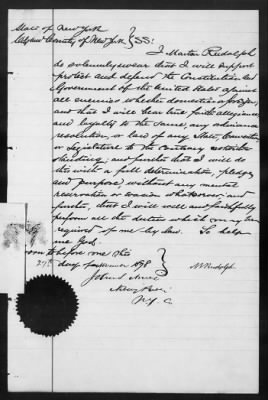 State of New York
City and County of New York } SS:
I Martin Rudolph
do solemnly swear that I will support
protect and defend the Constitution and
Government of the United States against
all enemies whether domestic or foreign,
and that I will bear true faith allegiance
and loyalty to the same, any ordinance
resolution, or law of any State, Convention
or Legislature to the contrary notwith
standing; and further that I will do
this with a full determination, pledge
and purpose, without any mental
reservation or evasion whatsoever, and
further, that I will well and faithfully
perform all the duties which may be
required of me by law. So help
me God.
Sworn to before me this
29th day of 1898
M Rudolph
Notary Public
N.Y. C